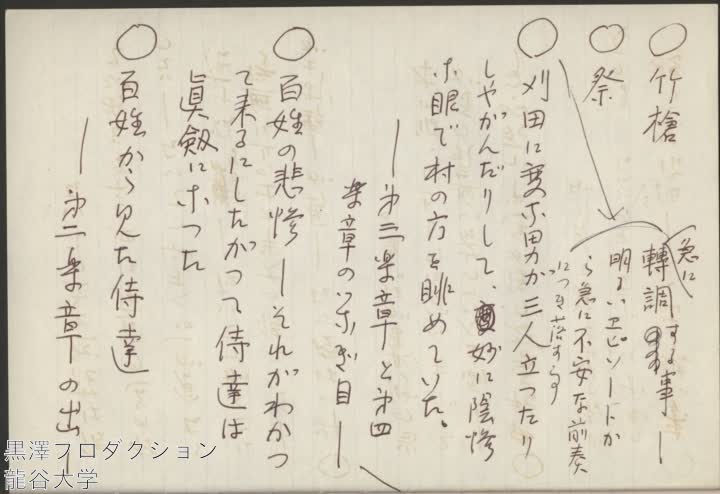 ○竹槍
○祭
急に
轉調する事ー
明るいエピソードか
ら急に不安な前奏
につき落す
○刈田に変な男が三人立つたり
しやがんだりして、妙に陰惨
な眼で村の方を眺めていた。
ー第三楽章と第四
楽章のつなぎ目ー
○百姓の悲惨ーそれがわかつ
て来るにしたがつて侍達は
眞劔になつた
○百姓から見た侍達
ー第二楽章の出ー
黒澤プロダクション
龍谷大学